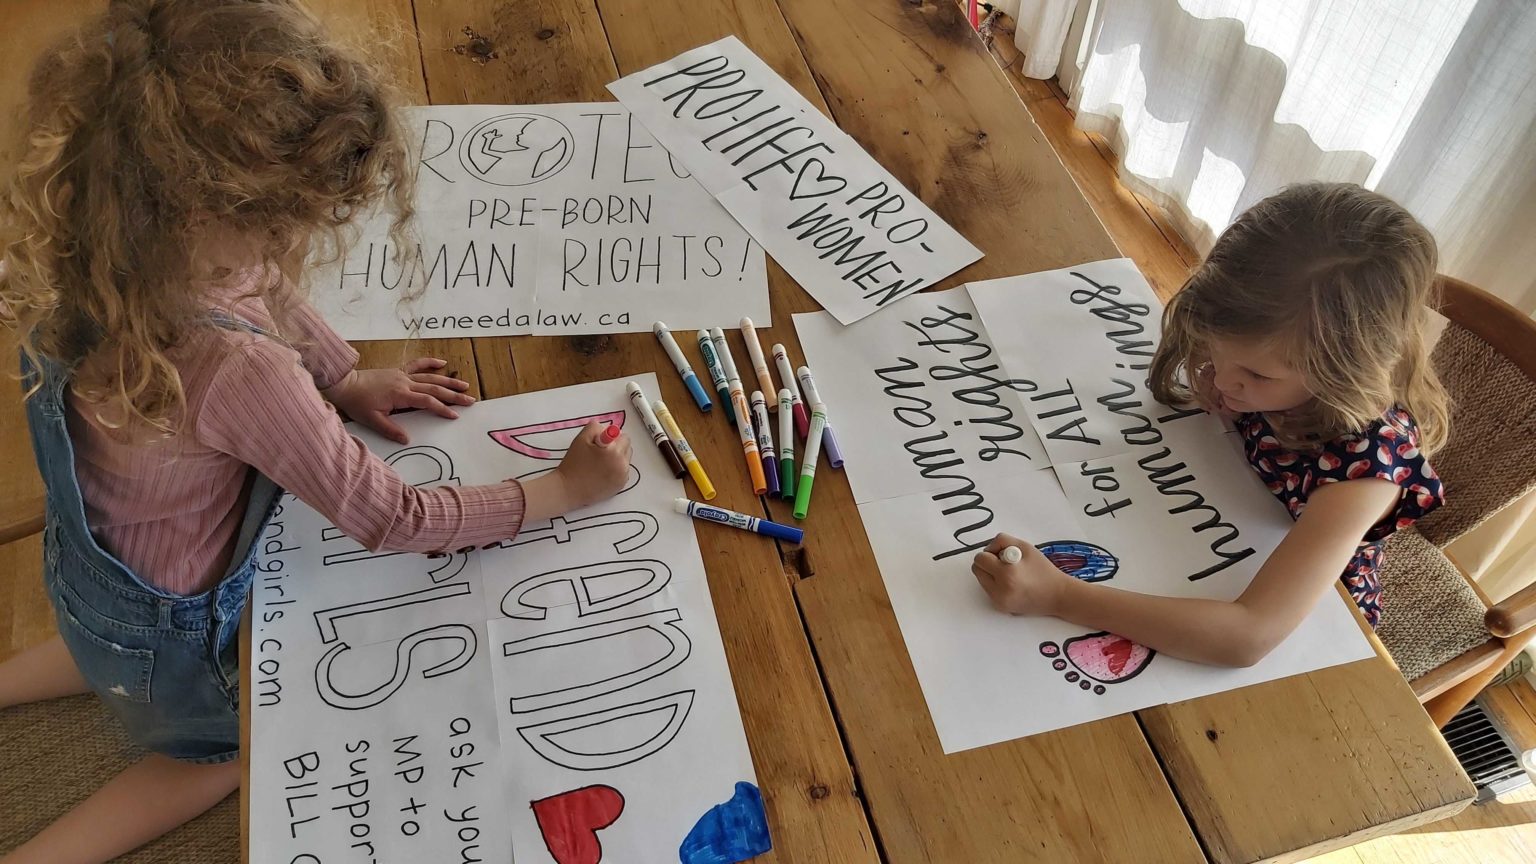 ROTEC
PRE-BORN
HUMAN RIGHTS!
weneedalaw.ca
PRO-LIFE
PRO-
WOMEN
human
rights
for ALL
human
ings
Defend
GIRLS
endgirls.com
ask you
MP to
suppor
BILL C
Crayola